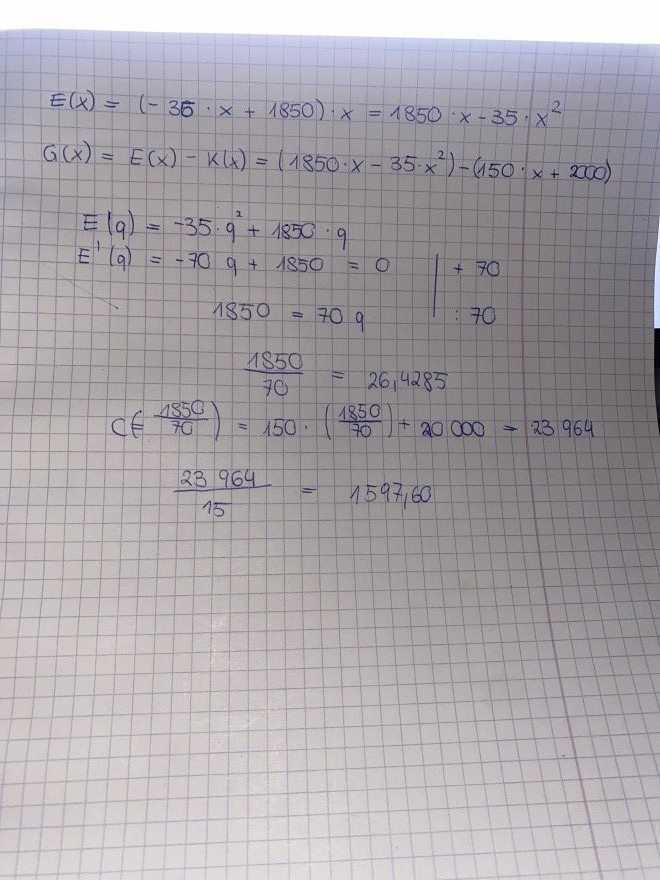 E(x) = (-35 · x + 1850) · x = 1850 · x - 35 · x²
G(x) = E(x) - K(x) = (1850 · x - 35 · x²) - (150 · x + 2000)
E(q) = -35 · q² + 1850 · q
E'(q) = -70 q + 1850 = 0 | + 70
1850 = 70 q | : 70
1850/70 = 26,4285
C(1850/70) = 150 · (1850/70) + 20 000 = 23 964
23 964/15 = 1597,60